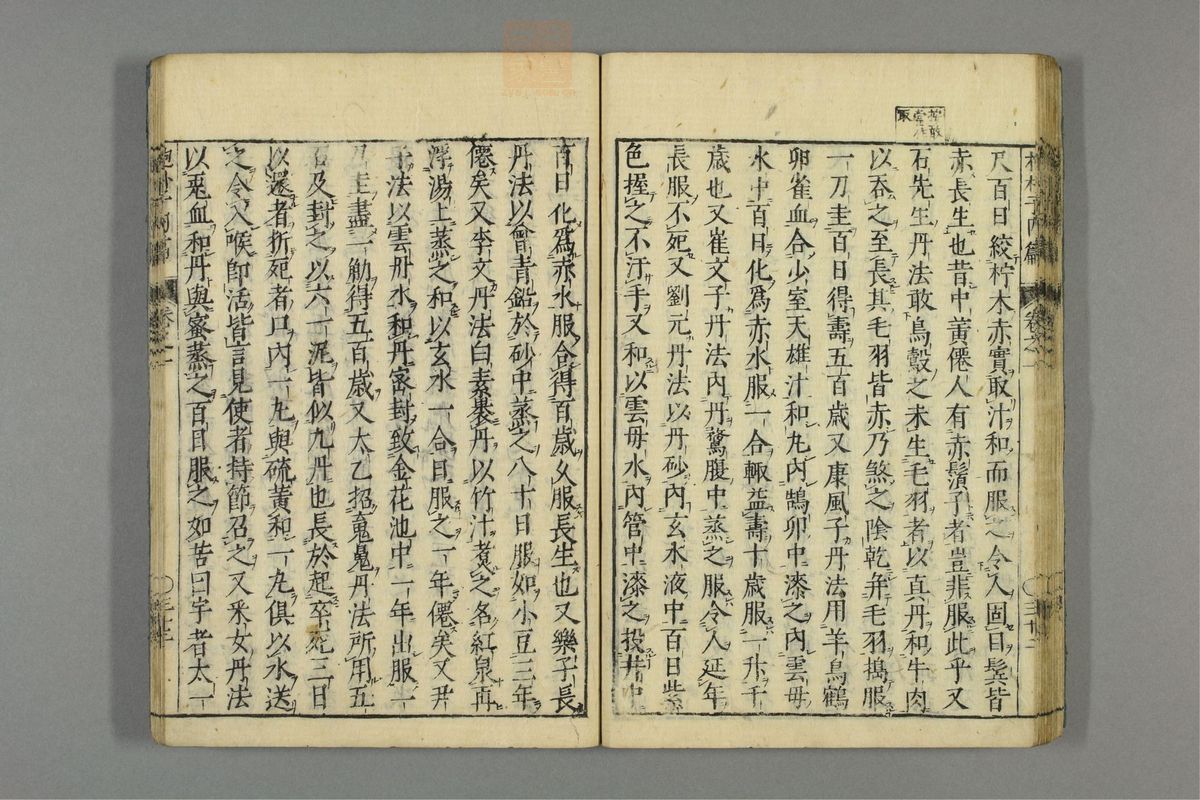 尺百日絞柠木赤實取汁和而服之令人固目鬢皆
赤長生也昔中黃僊人有赤鬚子者豈非服此乎又
石先生丹法取烏鷇之未生毛羽者以真丹和牛肉
以吞之至長其毛羽皆赤乃煞之陰乾并毛羽搗服
一刀圭百日得壽五百歲又康風子丹法用羊烏鶴
卵雀血合少室天雄汁和丸內鵠卵中漆之內雲母
水中百日化爲赤水服一合輙益壽十歲服一升千
歲也又崔文子丹法內丹鶩腹中蒸之服令人延年
長服不死又劉元丹法以丹砂內玄水液中百日紫
色握之不汙手又和以雲母水內管中漆之投井中
百日化爲赤水服合得百歲久服長生也又樂子長
丹法以曾青鉛於砂中蒸之八十日服如小豆三年
僊矣又李文丹法白素裹丹以竹汁煮之名紅泉再
浮湯上蒸之和以玄水一合日服之一年僊矣又尹
子法以雲母水和丹密封致金花池中一年出服一
刀圭盡一觔得五百歲又太乙招䰟魄丹法所用五
石及封之以六一泥皆似九丹也長於起卒死三日
以還者折死者口內一丸與硫黃和一丸俱以水送
之令入喉即活皆言見使者持節召之又采女丹法
以兎血和丹與蜜蒸之百日服之如苦曰宇者太一